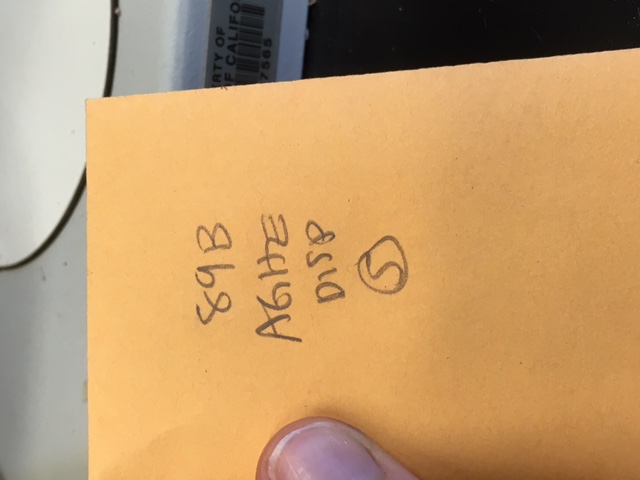 89B
AGHE
DISP
S
ERTY OF
OF CALIFO
7565